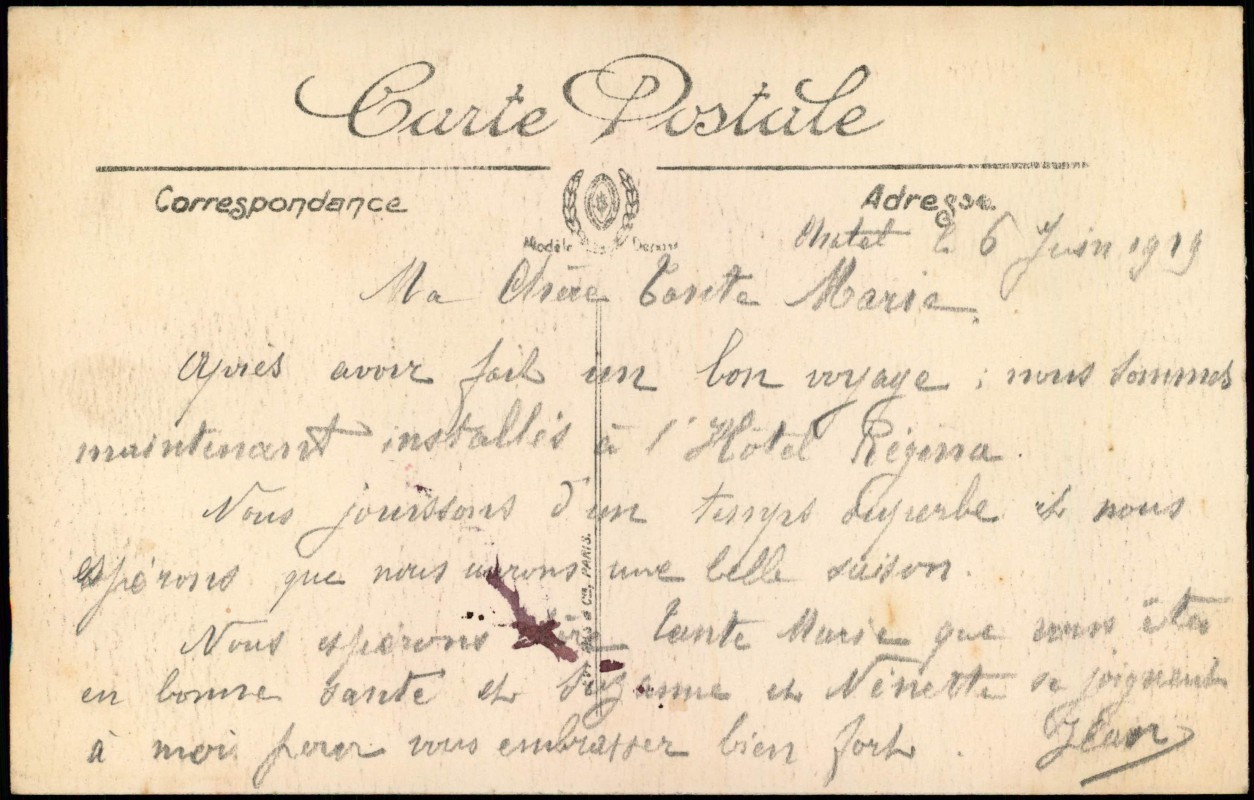 Carte Postale
Correspondance
Adresse
Modèle Déposé
Chatel le 6 Juin 1919
Ma Chère Tante Marie
Après avoir fait un bon voyage ; nous sommes
maintenant installés à l'Hôtel Régina.
Nous jouissons d'un temps superbe et nous
espérons que nous aurons une belle saison.
Nous espérons chère Tante Marie que vous êtes
en bonne santé et Suzanne et Nénette se joignent
à moi pour vous embrasser bien fort.
Jean
& Cie, PARIS.